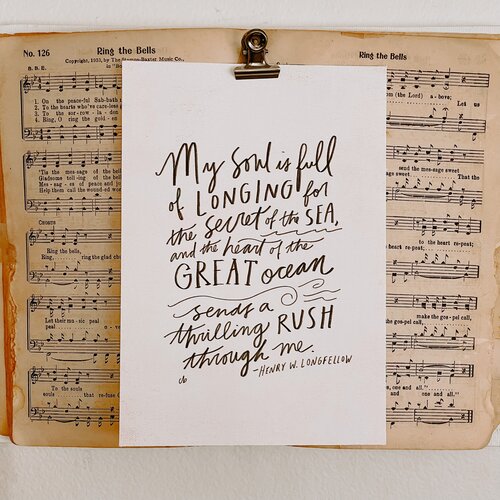 No. 126
Ring the Bells
Ring the Bells
Copyright, 1933, by The Stamps-Baxter Music Co.,
B. B. E.
in "
1 On the peaceful Sabbath
2. To the hearts who've care-less
3. To the sor-row-la-den
4. Ring, O ring the gold-en
(the Lord) a-bove;
Let us
'Tis the mes-sage of the bell
Gladsome toll-ing of the bell
Mes-sag-es of peace and
Help them call the wound-ed
send the mes-sage sweet
That the
CHORUS
Ring the bells,
Ring, ring the glad
to the heart re-peat;
heart re-peat;
Let their mu-sic peal
peal o
make the gos-pel call,
the gos-pel call,
To the souls
souls that re-fuse
one and all."
and one and all."
My soul is full
of LONGING for
the secret of the SEA,
and the heart of the
GREAT ocean
sends a
thrilling RUSH
through me.
-HENRY W. LONGFELLOW